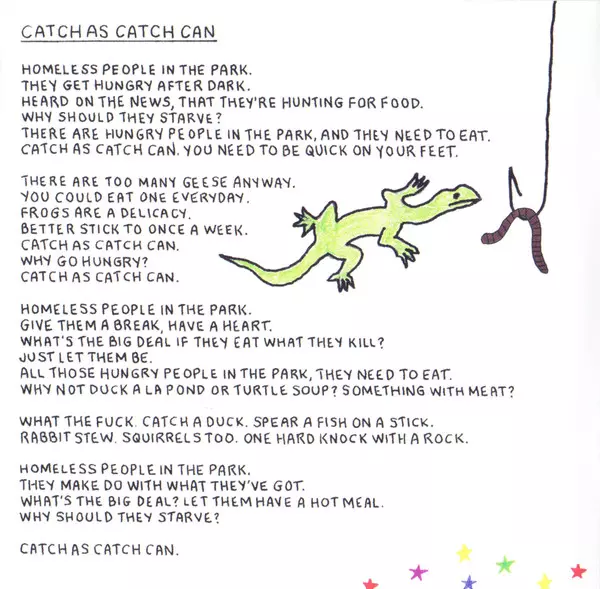 CATCH AS CATCH CAN
HOMELESS PEOPLE IN THE PARK.
THEY GET HUNGRY AFTER DARK.
HEARD ON THE NEWS, THAT THEY'RE HUNTING FOR FOOD.
WHY SHOULD THEY STARVE?
THERE ARE HUNGRY PEOPLE IN THE PARK, AND THEY NEED TO EAT.
CATCH AS CATCH CAN. YOU NEED TO BE QUICK ON YOUR FEET.
THERE ARE TOO MANY GEESE ANYWAY.
YOU COULD EAT ONE EVERYDAY.
FROGS ARE A DELICACY.
BETTER STICK TO ONCE A WEEK.
CATCH AS CATCH CAN.
WHY GO HUNGRY?
CATCH AS CATCH CAN.
HOMELESS PEOPLE IN THE PARK.
GIVE THEM A BREAK, HAVE A HEART.
WHAT'S THE BIG DEAL IF THEY EAT WHAT THEY KILL?
JUST LET THEM BE.
ALL THOSE HUNGRY PEOPLE IN THE PARK, THEY NEED TO EAT.
WHY NOT DUCK A LA POND OR TURTLE SOUP? SOMETHING WITH MEAT?
WHAT THE FUCK. CATCH A DUCK. SPEAR A FISH ON A STICK.
RABBIT STEW. SQUIRRELS TOO. ONE HARD KNOCK WITH A ROCK.
HOMELESS PEOPLE IN THE PARK.
THEY MAKE DO WITH WHAT THEY'VE GOT.
WHAT'S THE BIG DEAL? LET THEM HAVE A HOT MEAL.
WHY SHOULD THEY STARVE?
CATCH AS CATCH CAN.